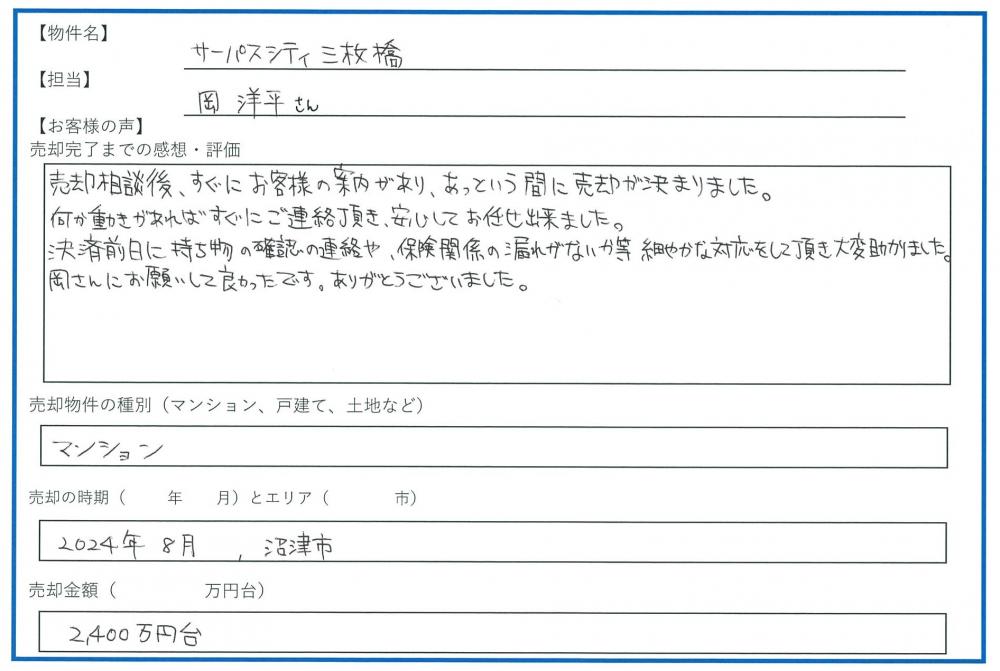 【物件名】
サーパスシティ三枚橋
【担当】
岡 洋平さん
【お客様の声】
売却完了までの感想・評価
売却相談後、すぐにお客様の案内があり、あっという間に売却が決まりました。
何か動きがあればすぐにご連絡頂き、安心してお任せ出来ました。
決済前日に持ち物の確認の連絡や、保険関係の漏れがないか等 細やかな対応をして頂き大変助かりました。
岡さんにお願いして良かったです。ありがとうございました。
売却物件の種別(マンション、戸建て、土地など)
マンション
売却の時期( 年 月)とエリア( 市)
2024年 8月 , 沼津市
売却金額( 万円台)
2,400万円台